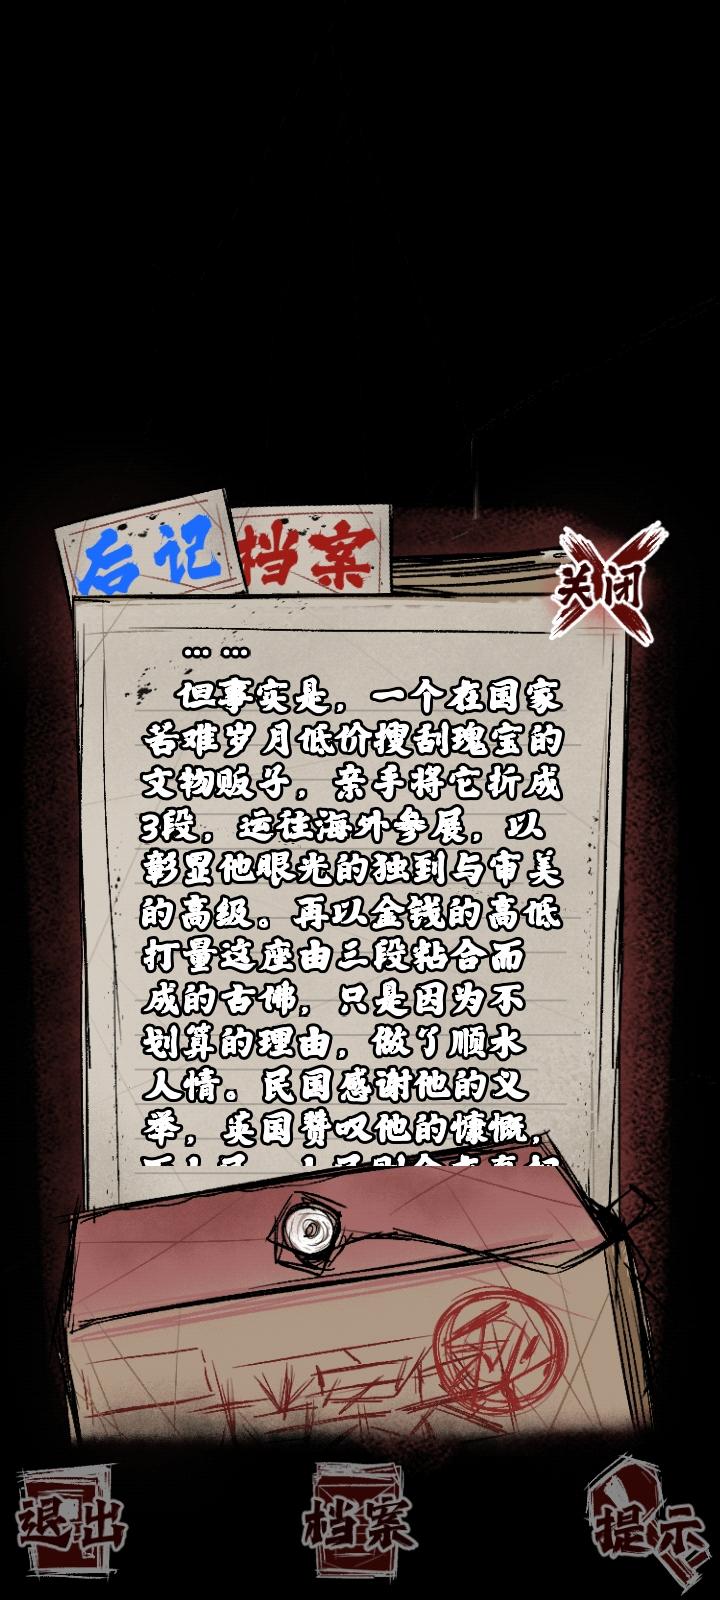 后记
档案
关闭
... ...
但事实是，一个在国家
苦难岁月低价搜刮瑰宝的
文物贩子，亲手将它折成
3段，运往海外参展，以
彰显他眼光的独到与审美
的高级。再以金钱的高低
打量这座由三段粘合而
成的古佛，只是因为不
划算的理由，做了顺水
人情。民国感谢他的义
举，英国赞叹他的慷慨，
退出
档案
提示